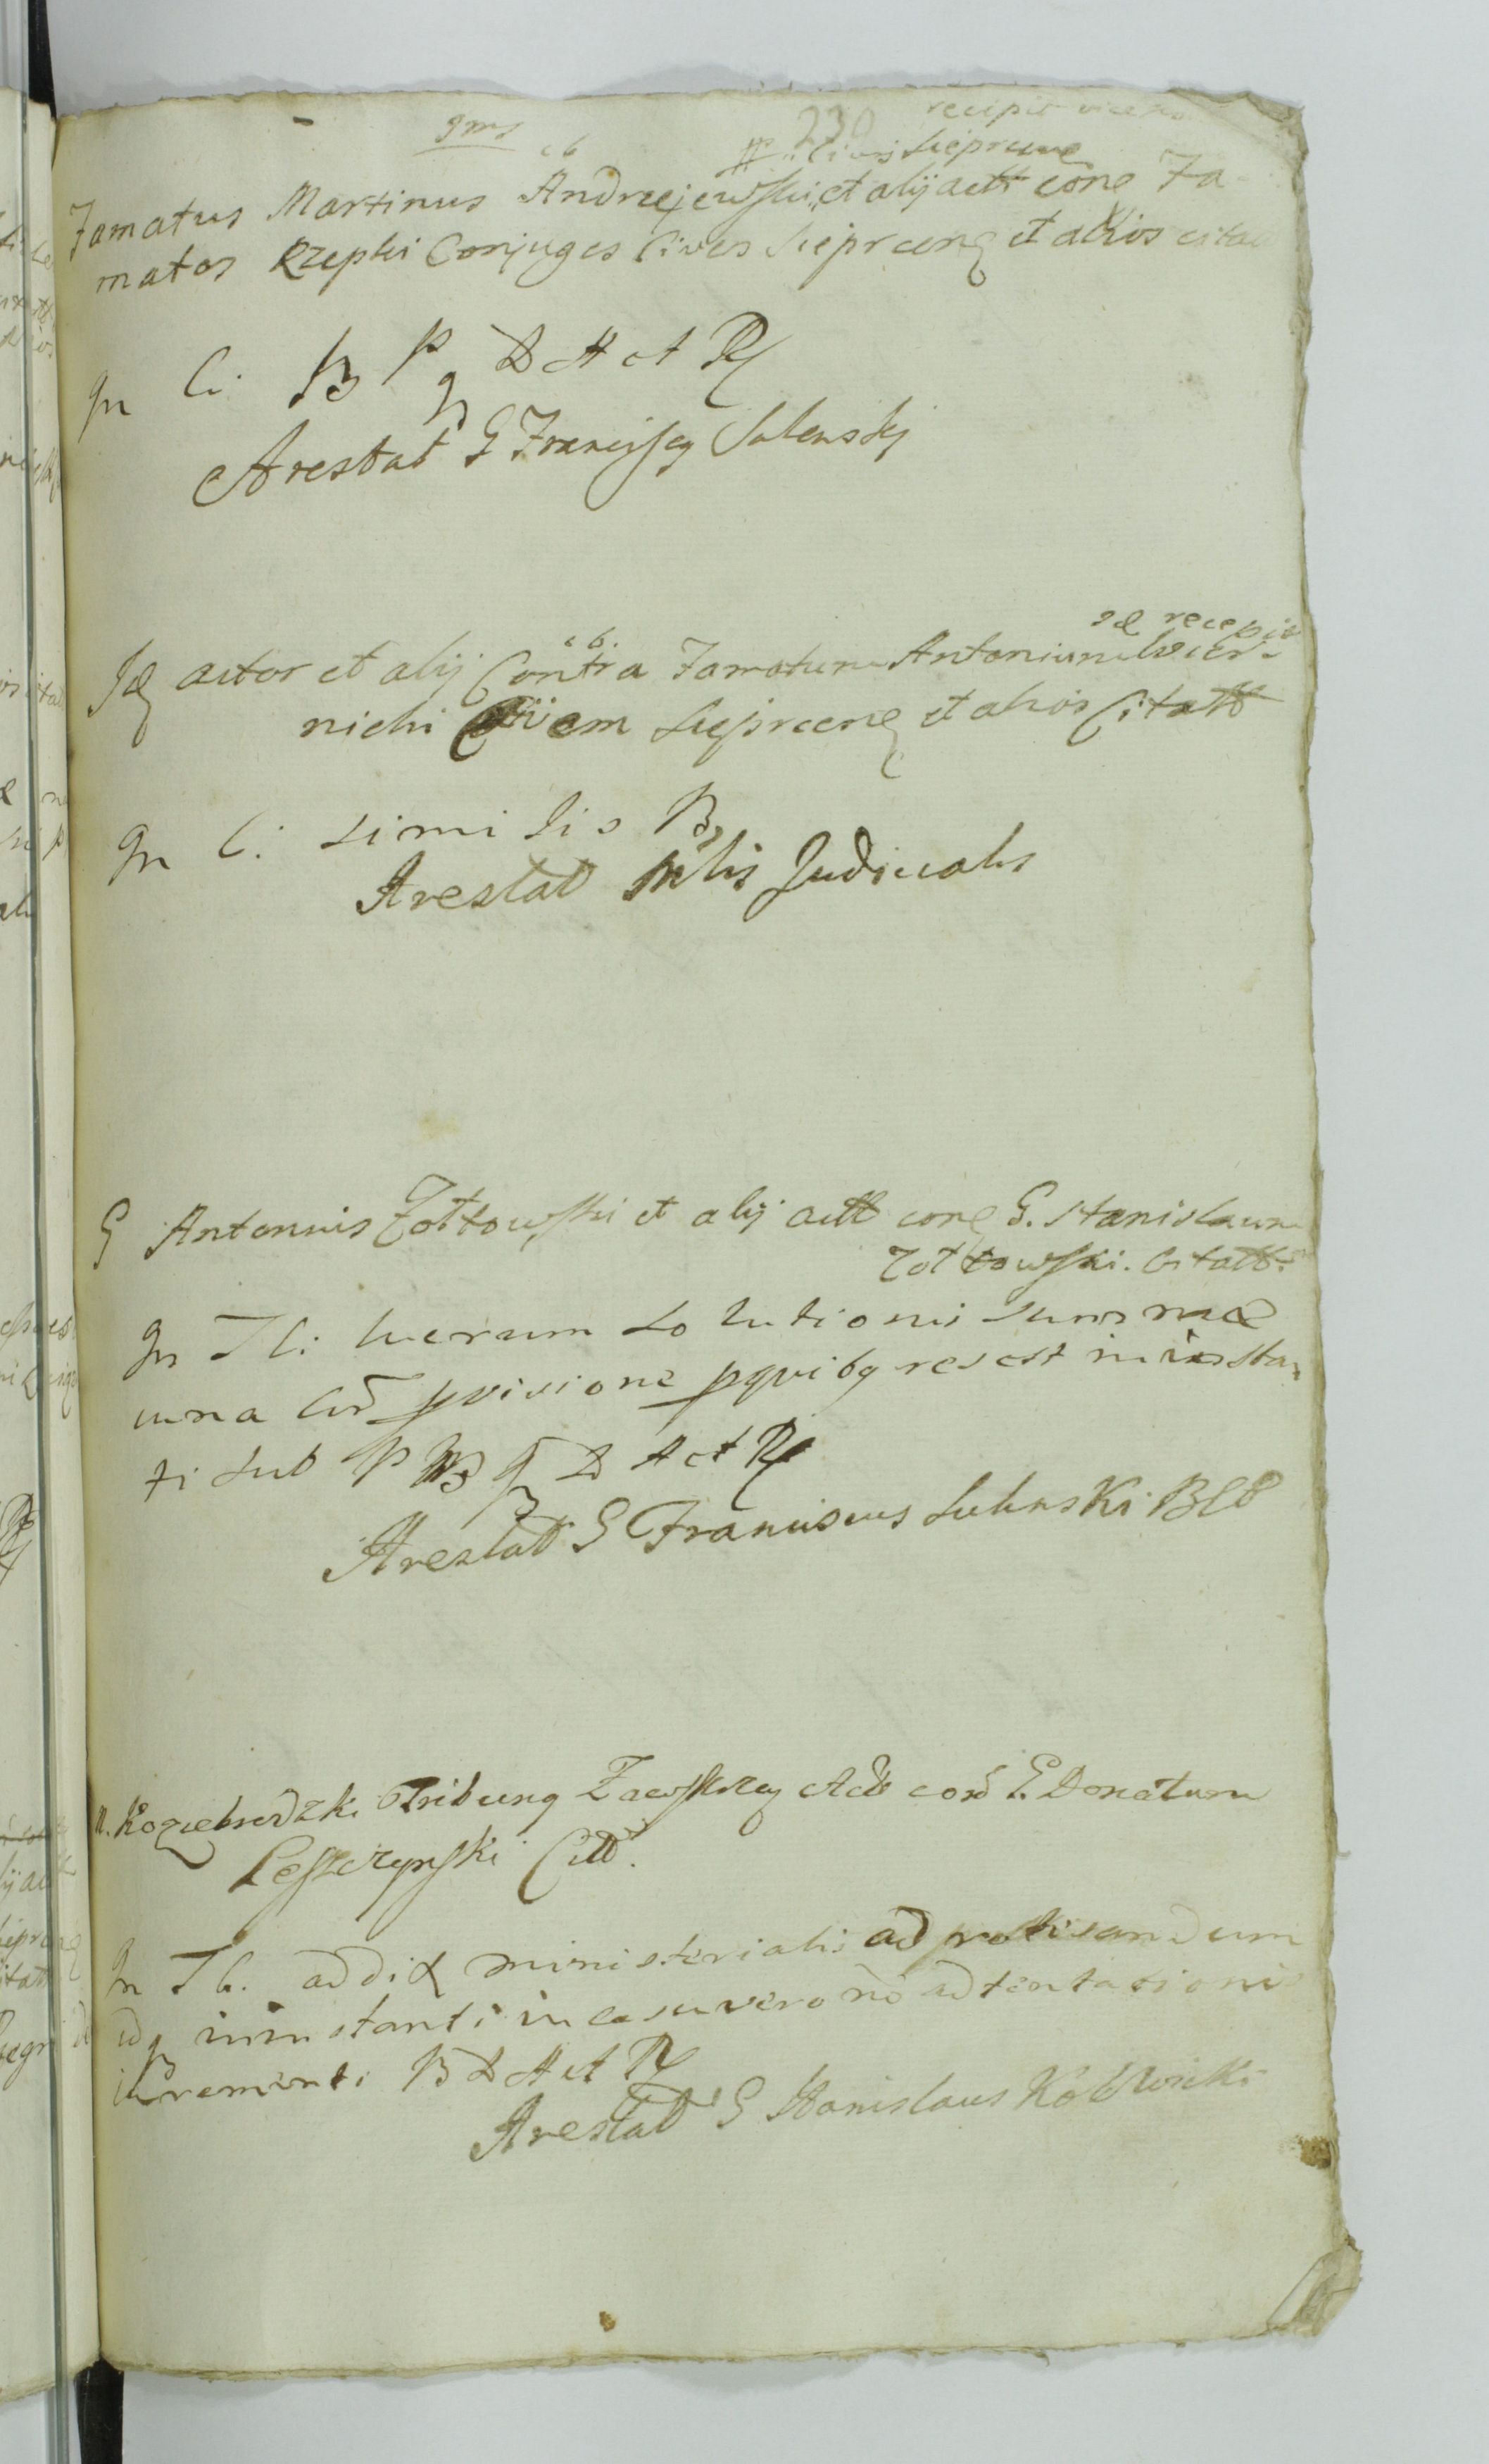 gms 230 recipit
cb Civis Sieprcens
Famatus Martinus Andrzejewski, et alij actt cone Fa-
matos Rzepki Conjuges Cives Sieprcens et alios citat
In C. B P q D A et R
Arestat G Franciscq Sulenskj
cb. Id recepit
Id actor et alij Contra Famatum Antonium
nicki Civem Sieprcens et alios Citatt
In C. similis B
Arestat Mtis Judicialis
G Antonius Żółtowski et alij actt cone G. Stanislaum
Żółtowski. Citatt.
In T C. luerum solutionis summae
una cum pvisione pquibq res est in insta-
ti sub P B q D A et R
Arestat G Franciscus Sulenski B C P
M. Koziebrodzki Tribunq Zawskrzy Actt cone G. Donatum
Leszczynski Citt.
In T C. addit ministerialis ad
idq in instanti in casu vero no adtentationis
iuramenti B D A et R
Arestat G Stanislaus